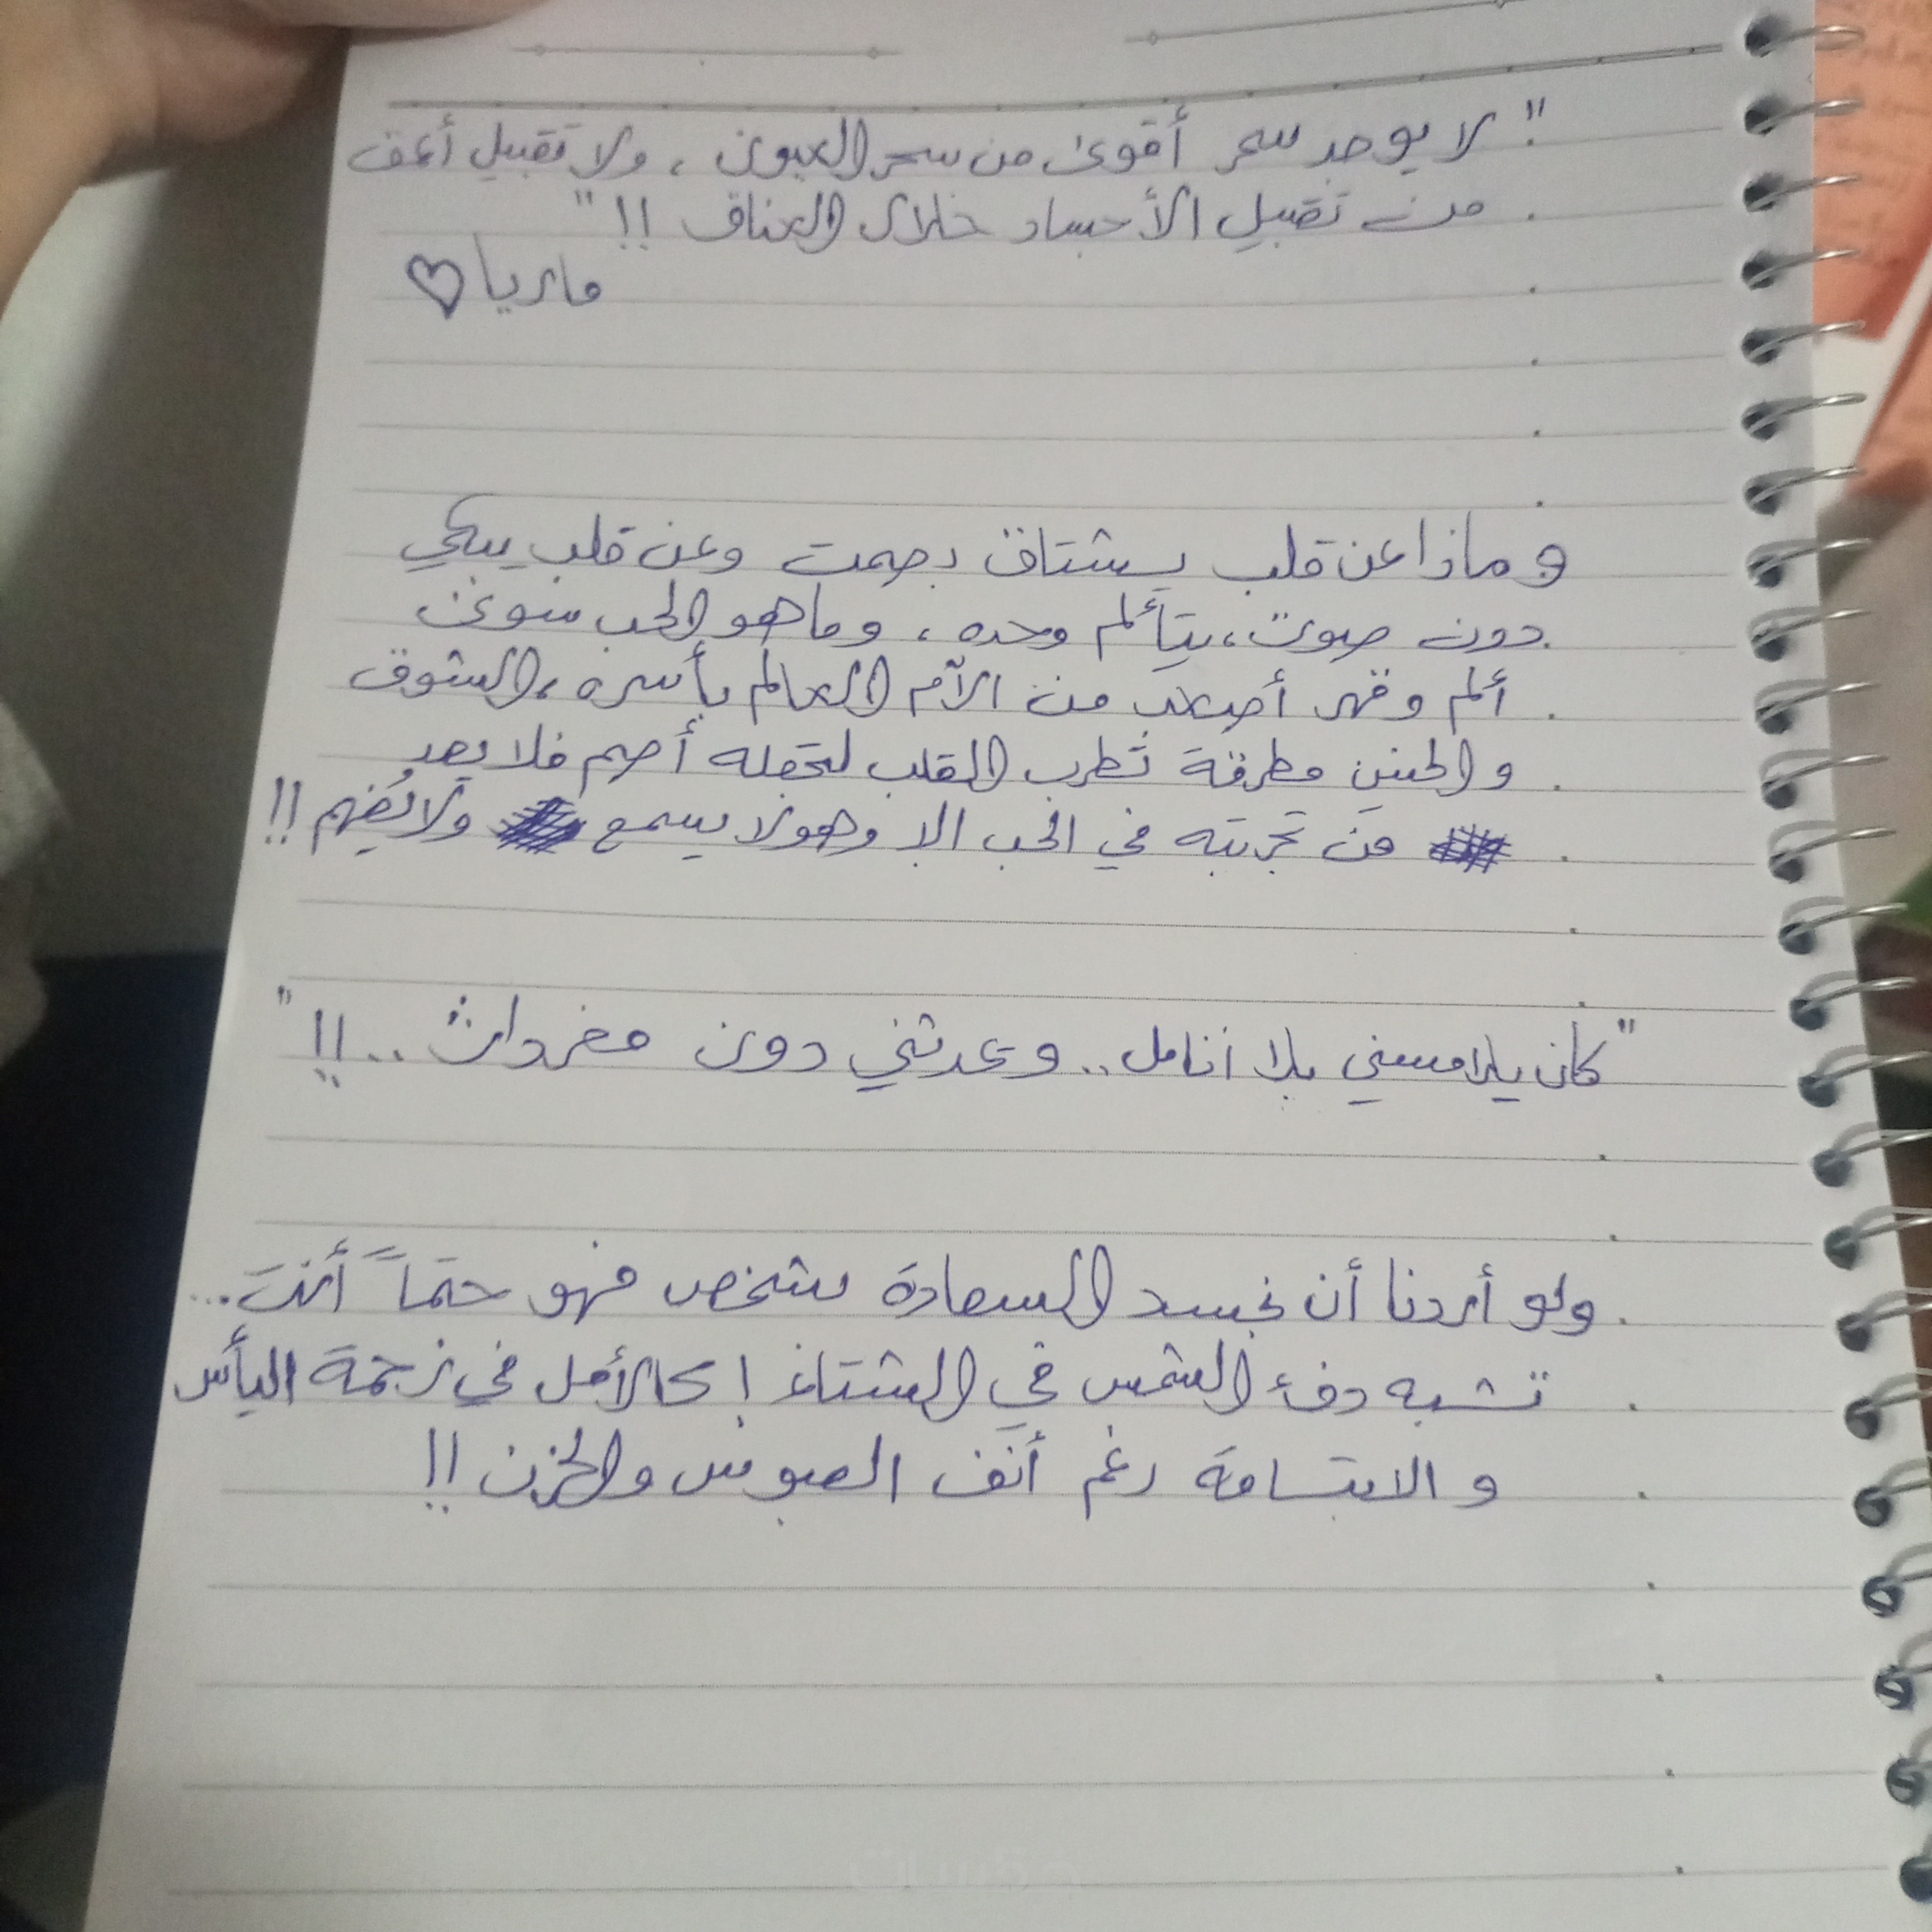 "لا يوجد سحر أقوى من سحر العيون ، ولا تقبيل أعمق
من تقبيل الأجساد خلال العناق !!"
ماريا♡
وماذا عن قلب يشتاق بصمت وعن قلب يبكي
دون صوت، يتألم وحده ، وما هو الحب سوى
ألم وقهر أصعب من الآم العالم بأسره ، الشوق
والحنين مطرقة تطرب القلب لتجعله أصم فلا يعد
من تجربته في الحب الا وهو لا يسمع ولا يُفهم !!
"كان يلامسني بلا أنامل.. و يحدثني دون مفردات ..!!"
ولو أردنا أن نجسد السعادة بشخص فهو حتماً أنتَ...
تشبه دفء الشمس في الشتاء ! كالأمل في زحمة اليأس
و الابتسامة رغم أنف العبوس والحزن !!